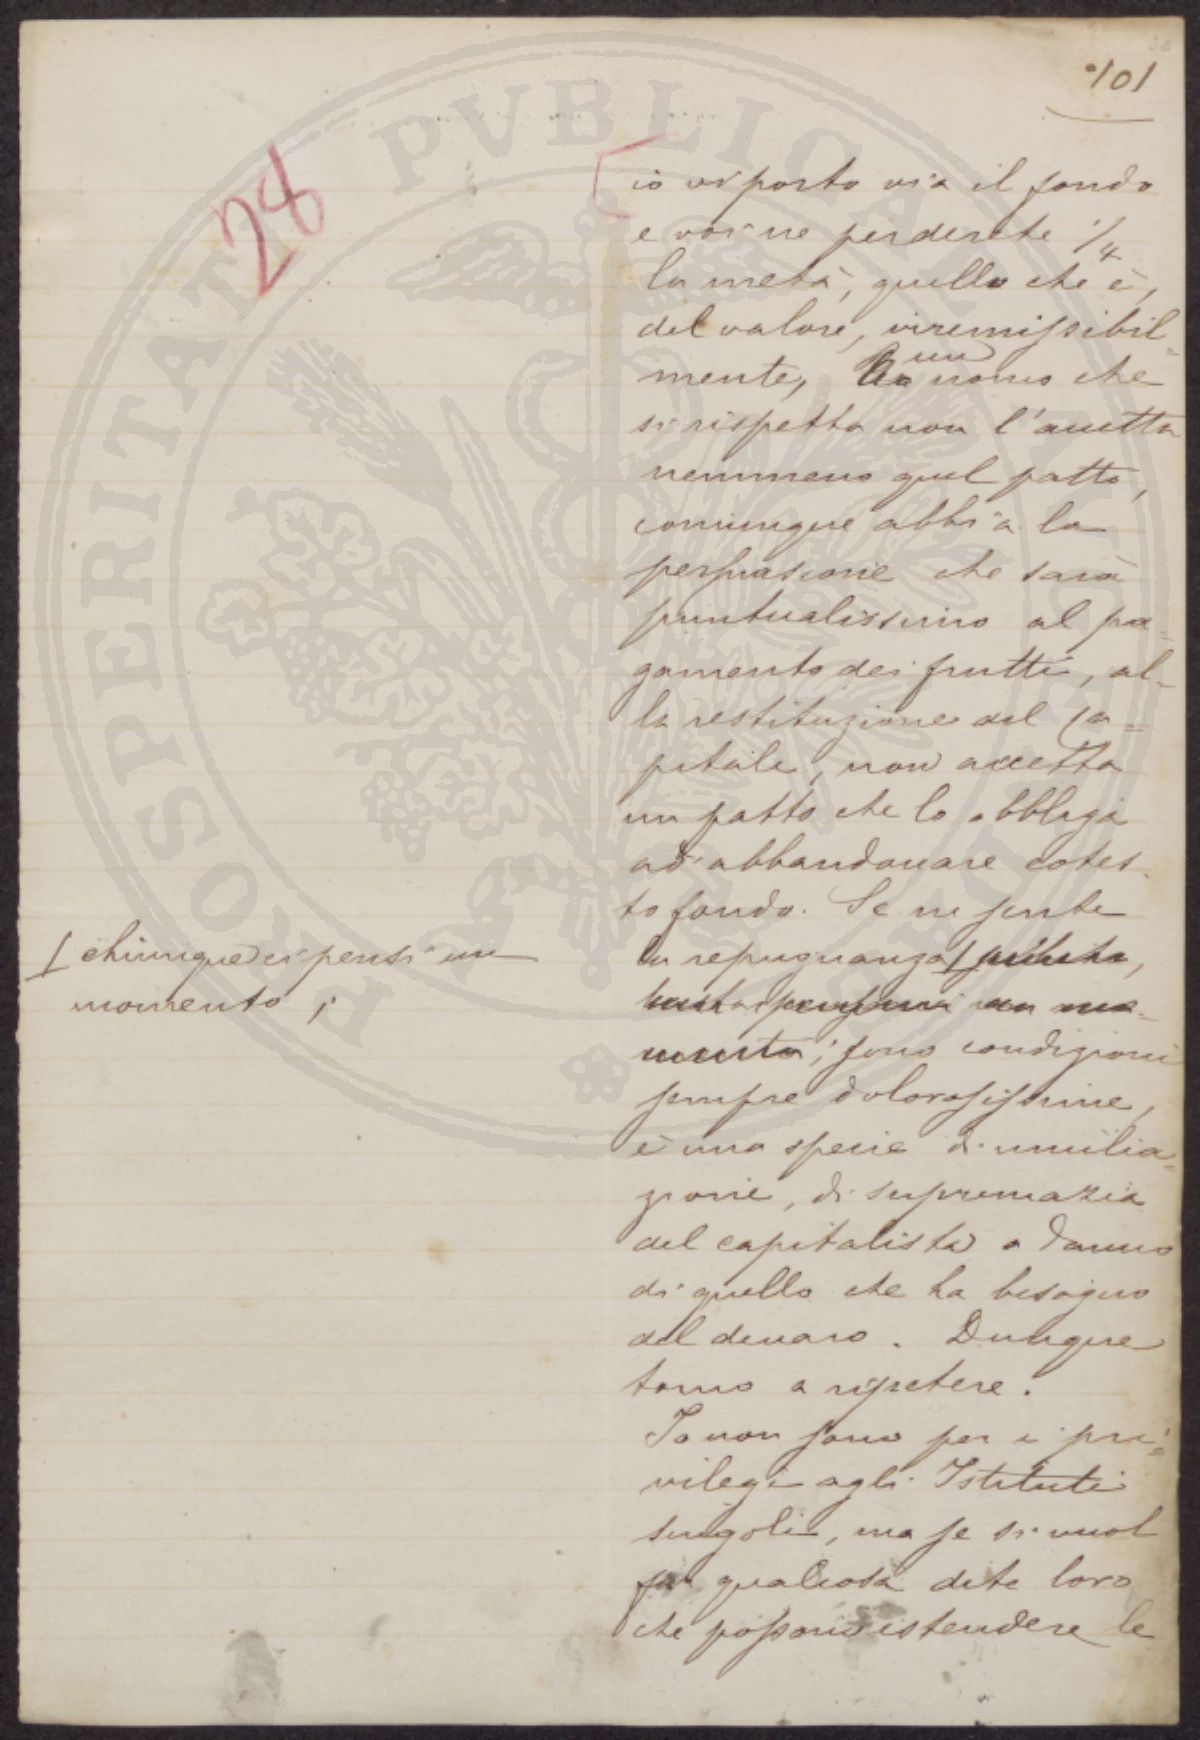 101
28
io vi porto via il fondo
e voi ne perderete 1/4
la metà, quello che è,
del valore, irremissibil-
mente, un uomo che
si rispetta non l'accetta
nemmeno quel patto,
comunque abbia la
persuasione che sarà
puntualissimo al pa-
gamento dei frutti, al-
la restituzione del ca-
pitale, non accetta
un patto che lo obbliga
ad abbandonare cotes-
to fondo. Se ne sente
la repugnanza subito,
basta pensarvi un mo-
mento; sono condizioni
chiunque ci pensi un
momento;
sempre dolorosissime,
è una specie di umilia-
zione, di supremazia
del capitalista a danno
di quello che ha bisogno
del denaro. Dunque
torno a ripetere.
Io non sono per i pri-
vilegi agli Istituti
singoli, ma se si vuol
far qualcosa dite loro
che possono estendere le
PROSPERITATI PVBLICAE